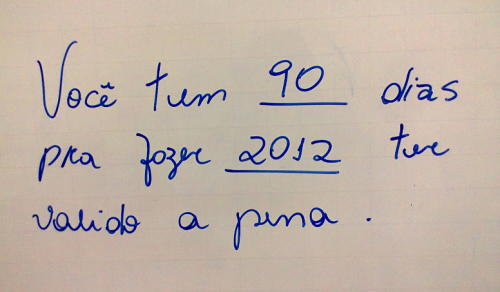 Você tem 90 dias
pra fazer 2012 ter
valido a pena.